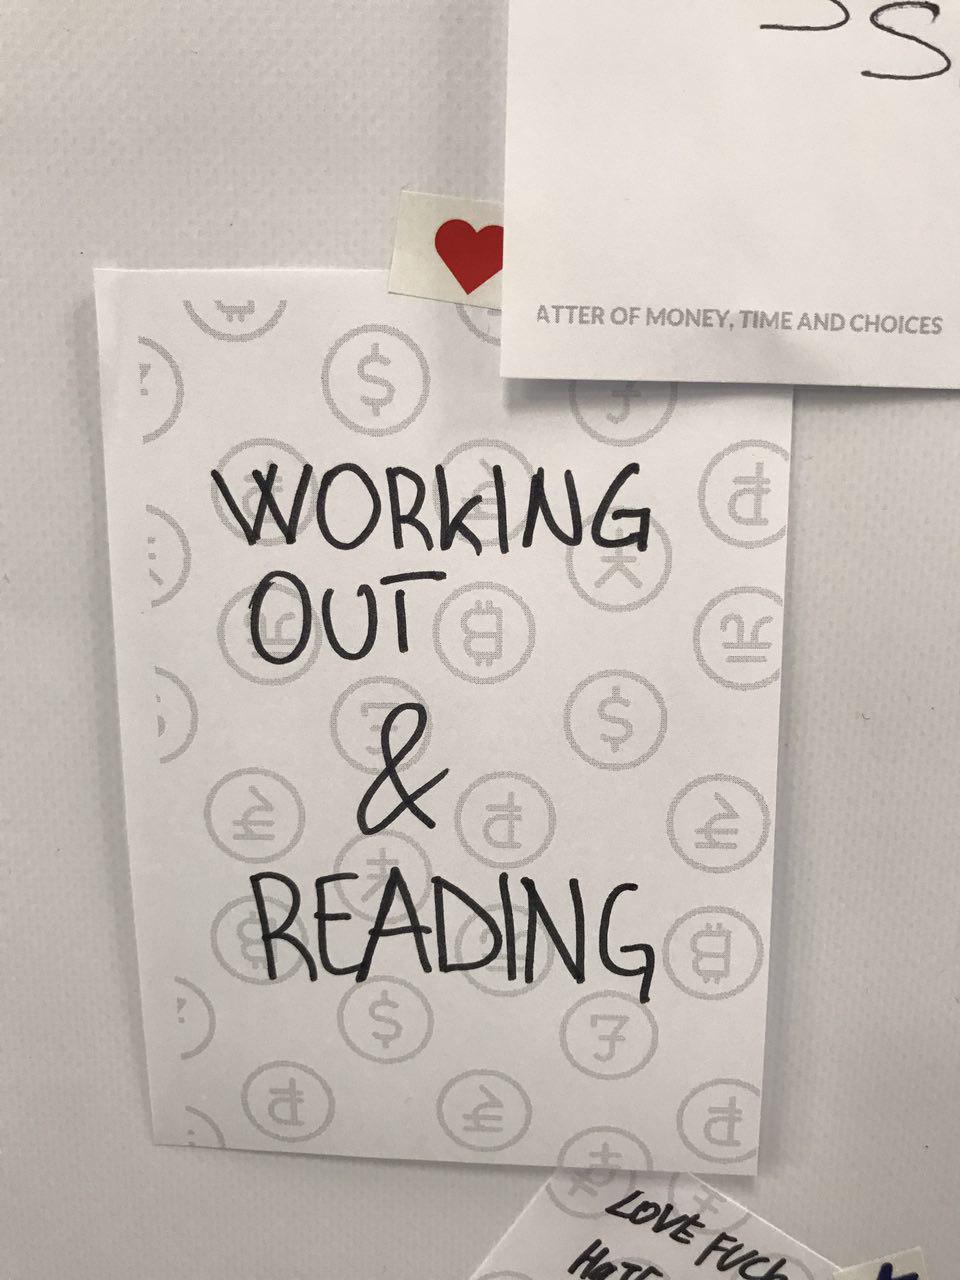 S
ATTER OF MONEY, TIME AND CHOICES
WORKING
OUT
&
READING
LOVE
HATE